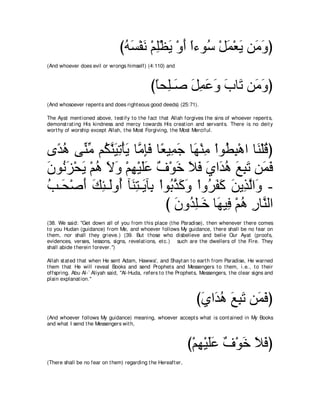 (وَمَن يَعْمَلْ سُوءاً أَوْ يَظْلِمْ نَفْسَهُ)
(And whoever does evil or wrongs himself) (4:110) and
(وَمَن تَابَ وَعَمِلَ صَـلِحاً)
(And whosoever repents and does righteous good deeds) (25:71).
The Ayat mentioned above, testify to the fact that Allah forgives the sins of whoever repents,
demonstrating His kindness and mercy towards His creation and servants. There is no deity
worthy of worship except Allah, the Most Forgiving, the Most Merciful.
(قُلْنَا اهْبِطُواْ مِنْهَا جَمِيعًا فَإِمَّا يَأْتِيَنَّكُم مِّنِّى هُدًى
فَمَن تَبِعَ هُدَايَ فَلاَ خَوْفٌ عَلَيْهِمْ وَلاَ هُمْ يَحْزَنُونَ
- وَالَّذِينَ كَفَرُواْ وَكَذَّبُواْ بِآيَـتِنَآ أُولَـئِكَ أَصْحَـبُ
النَّارِ هُمْ فِيهَا خَـلِدُونَ )
(38. We said: "Get down all of you from this place (the Paradise), then whenever there comes
to you Hudan (guidance) from Me, and whoever follows My guidance, there shall be no fear on
them, nor shall they grieve.) (39. But those who disbelieve and belie Our Ayat (proofs,
evidences, verses, lessons, signs, revelations, etc.) such are the dwellers of the Fire. They
shall abide therein forever.")
Allah stated that when He sent Adam, Hawwa', and Shaytan to earth from Paradise, He warned
them that He will reveal Books and send Prophets and Messengers to them, i.e., to their
offspring. Abu Al-`Aliyah said, "Al-Huda, refers to the Prophets, Messengers, the clear signs and
plain explanation."
(فَمَن تَبِعَ هُدَايَ)
(And whoever follows My guidance) meaning, whoever accepts what is contained in My Books
and what I send the Messengers with,
(فَلاَ خَوْفٌ عَلَيْهِمْ)
(There shall be no fear on them) regarding the Hereafter,